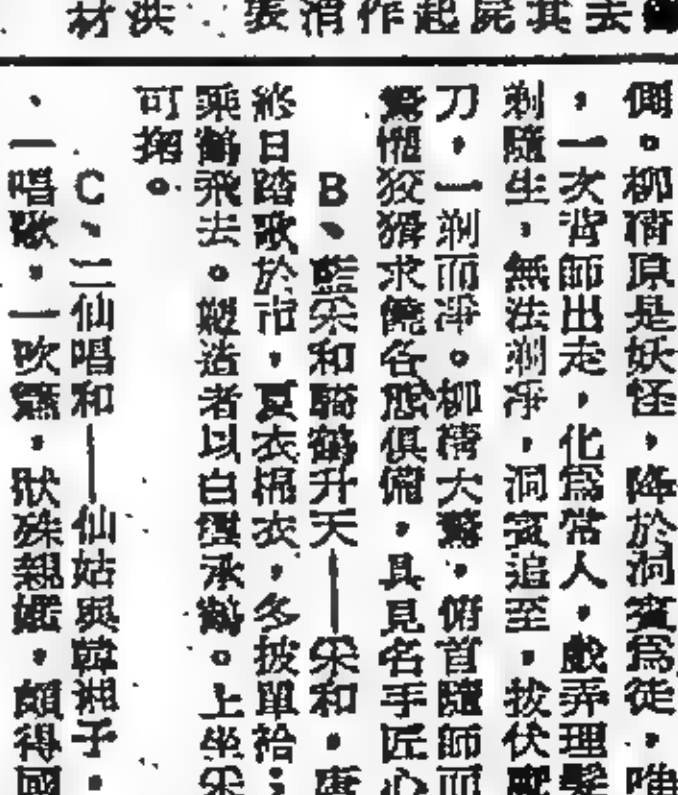 去其屍起作消
洪材
側。柳精原是妖怪，降於洞賓爲徒，唯
，一次背師出走，化爲常人，戲弄理髮
剃隨生，無法剃淨，洞賓追至，拔伏魔
刀，一剃而淨。柳精大驚，俯首隨師而
驚懼狡猾求饒各態俱備，具見名手匠心
B、藍采和騎鶴升天——采和，唐
終日踏歌於市，夏衣棉衣，多披單袷；
乘鶴飛去。塑造者以白雲承鶴。上坐采
可掬。
C、二仙唱和——仙姑與韓湘子，
、一唱歌，一吹簫，狀殊親嫟，頗得國